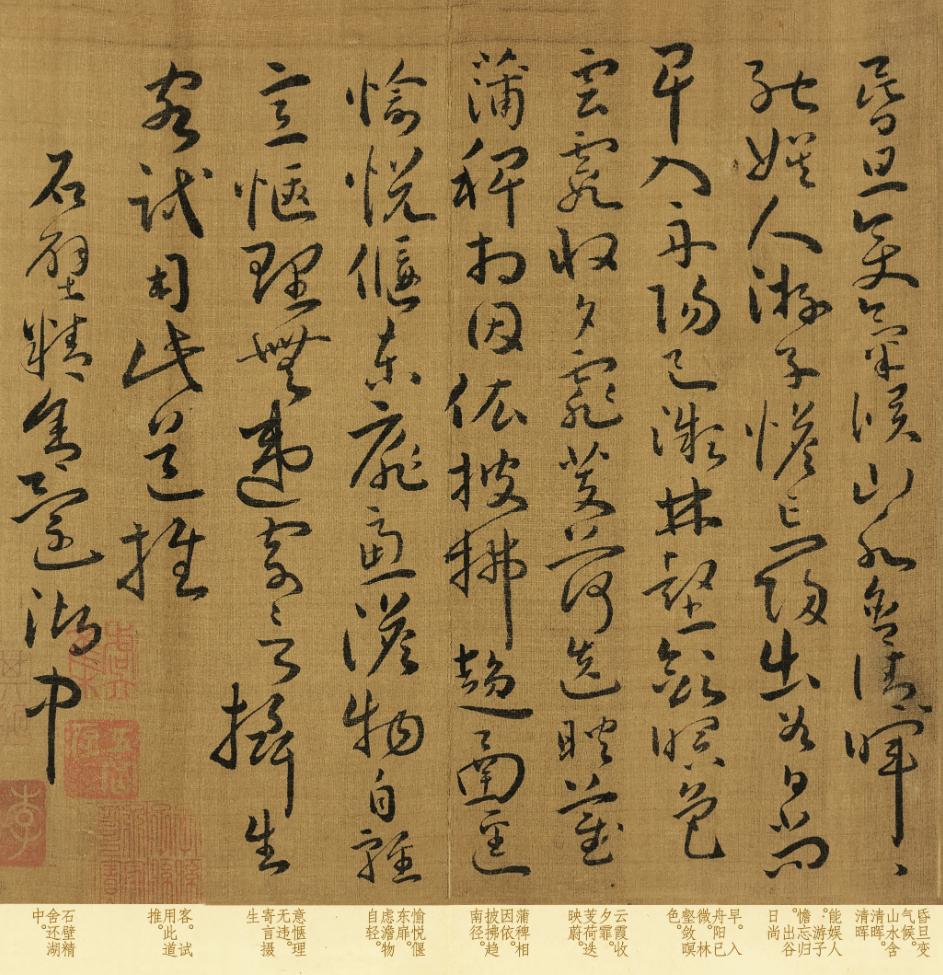 昏旦變氣候山水含清暉〻
能娛人游子憺忘歸出谷日尚
早入舟陽已微林壑斂暝色
雲霞收夕霏芰荷迭映蔚
蒲稗相因依披拂趨南逕
愉悅偃東扉慮澹物自輕
意愜理無違寄言攝生
客試用此道推
石壁精舍還湖中
李
昏旦变
气候。
山水含
清晖。
清晖
能娱人
，游子
憺忘归
。出谷
日尚
早。入
舟阳已
微。林
壑敛暝
色。
云霞收
夕霏。
芰荷迭
映蔚。
蒲稗相
因依。
披拂趋
南径。
愉悦偃
东扉。
虑澹物
自轻。
意惬理
无违。
寄言摄
生
客。试
用此道
推。
石壁精
舍还湖
中。